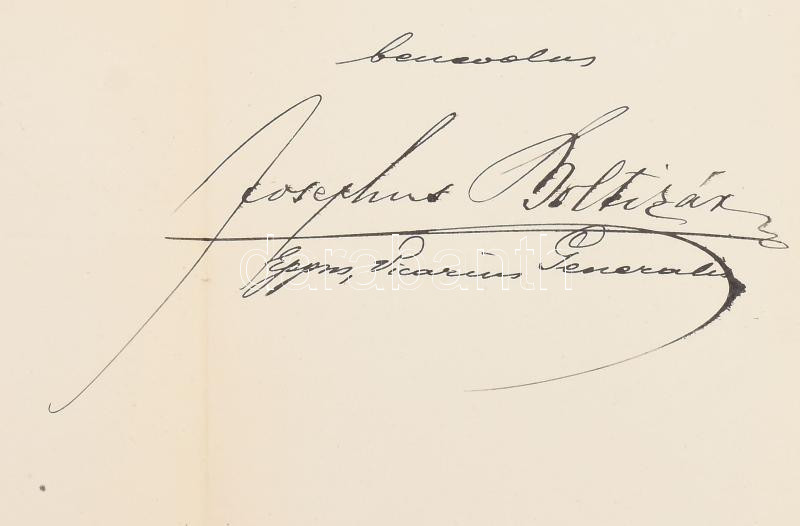 benevolus
Josephus Boltizár
Eppus, Vicarius Generalis
darabanth